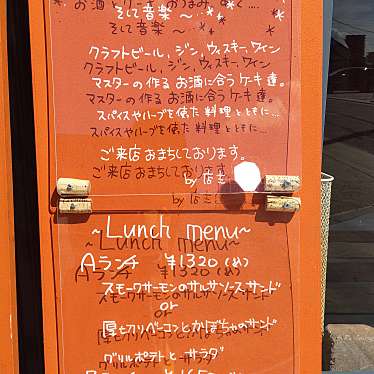 お酒とケーキ
そして音楽～
クラフトビール、ジン、ウィスキー、ワイン
マスターの作るお酒に合うケーキ達。
スパイスやハーブを使った料理とともに…
ご来店おまちしております。
by 店主
~Lunch menu~
Aランチ ¥1320(込)
スモークサーモンのサルサソースサンド
or
厚切りベーコンとかぼちゃのサンド
グリルポテトとサラダ